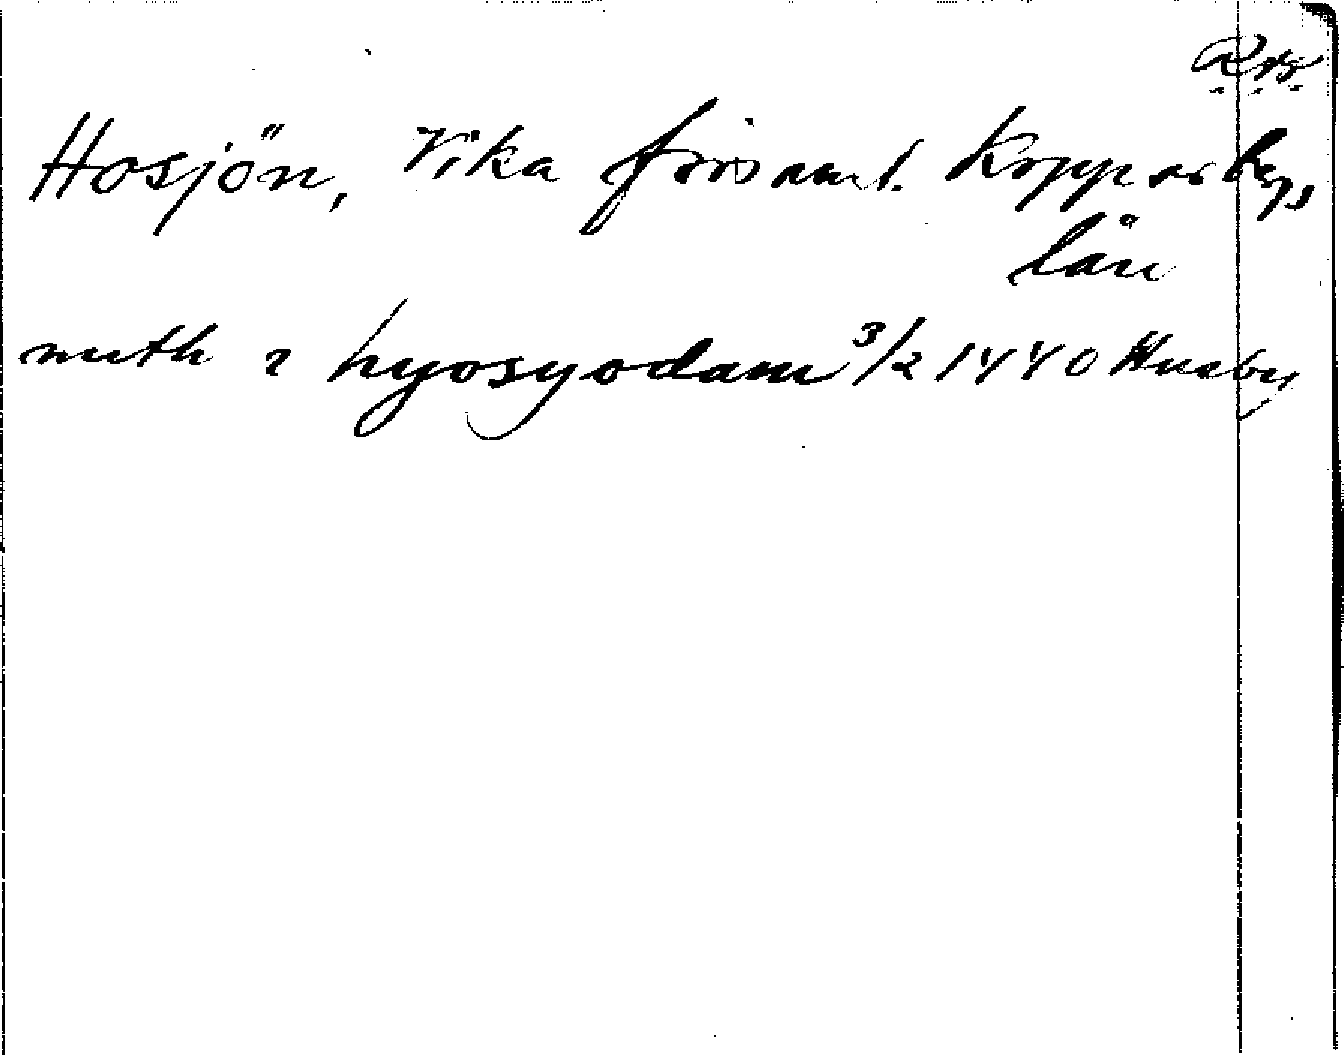 Hosjön, Vika församl. Kopparbergs
län
nuth i hyosyodam 3/2 1440 Husby